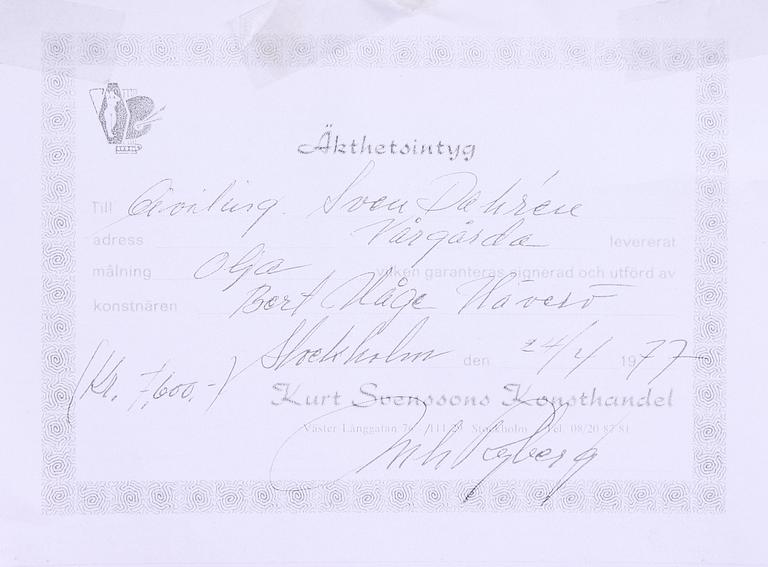 Äkthetsintyg
Till Civiling. Sven Dahrén
adress Vårgårda levererat
målning Olja vilken garanteras signerad och utförd av
konstnären Bert Håge Häverö
Stockholm den 24/4 1977
(Kr. 7,600.-)
Kurt Svenssons Konsthandel
Väster Långgatan 76 /111 29 Stockholm Tel. 08/20 82 81